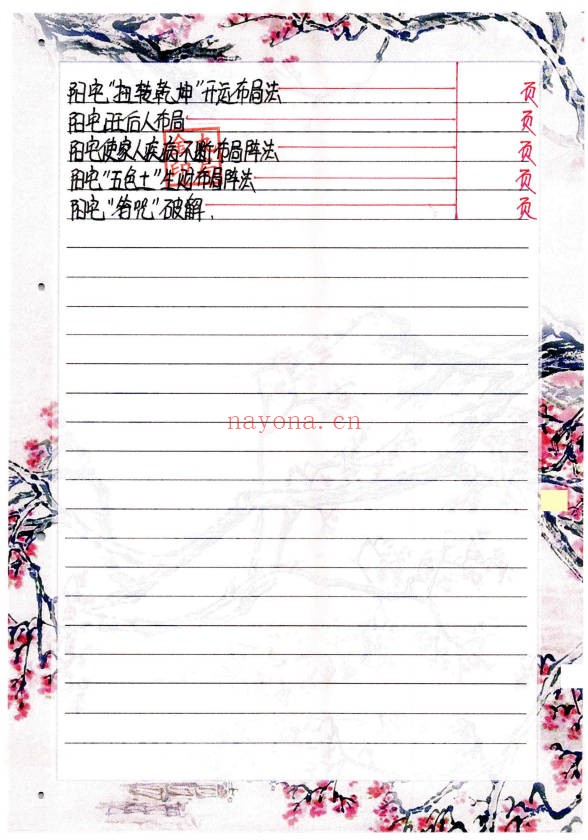 阳宅“扭转乾坤”开运布局法 页
阳宅旺后人布局 页
阳宅使家人疾病不断布局阵法 页
阳宅“五色土”生财布局阵法 页
阳宅“咒”破解. 页
nayona.cn